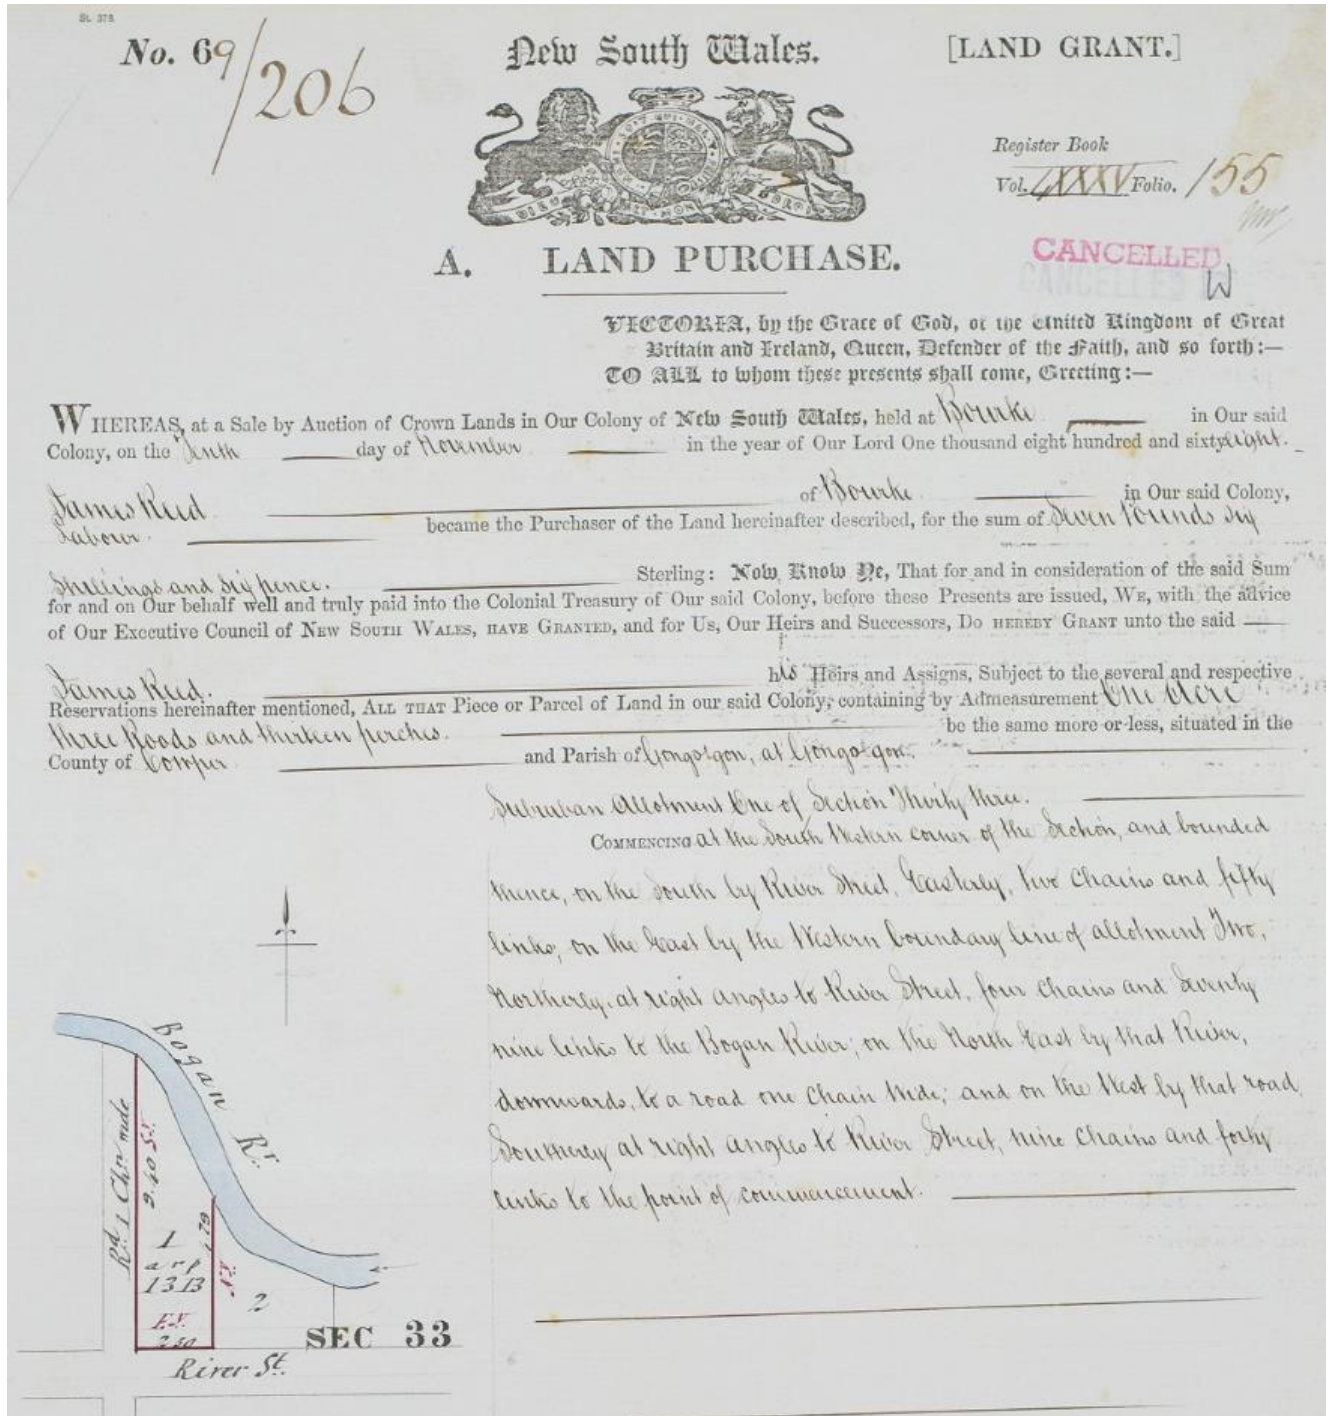 St. 378
No. 69/206
New South Wales.
[LAND GRANT.]
Register Book
Vol. LXXXV Folio. 155
CANCELLED
CANCELLED
W
A. LAND PURCHASE.
VICTORIA, by the Grace of God, of the United Kingdom of Great
Britain and Ireland, Queen, Defender of the Faith, and so forth:—
TO ALL to whom these presents shall come, Greeting:—
WHEREAS, at a Sale by Auction of Crown Lands in Our Colony of New South Wales, held at Bourke in Our said
Colony, on the Tenth day of November in the year of Our Lord One thousand eight hundred and sixty eight.
James Reed of Bourke in Our said Colony,
Labour. became the Purchaser of the Land hereinafter described, for the sum of Seven Pounds six
Shillings and Six pence. Sterling: Now Know Ye, That for and in consideration of the said Sum
for and on Our behalf well and truly paid into the Colonial Treasury of Our said Colony, before these Presents are issued, WE, with the advice
of Our Executive Council of NEW SOUTH WALES, HAVE GRANTED, and for Us, Our Heirs and Successors, DO HEREBY GRANT unto the said
James Reed. his Heirs and Assigns, Subject to the several and respective
Reservations hereinafter mentioned, ALL THAT Piece or Parcel of Land in our said Colony, containing by Admeasurement One Acre
three Roods and thirteen perches. be the same more or less, situated in the
County of Cowper and Parish of Gongolgon, at Gongolgon.
Suburban Allotment One of Section Thirty three.
COMMENCING at the South Western corner of the Section, and bounded
thence, on the South by River Street, Easterly, two chains and fifty
links; on the East by the Western boundary line of allotment Two,
Northerly at right angles to River Street, four chains and seventy
nine links to the Bogan River; on the North East by that River,
downwards, to a road one chain wide; and on the West by that road
Southerly at right angles to River Street, nine chains and forty
links to the point of commencement.
Bogan Rr.
Rd. 1 Chn wide
9.40 S.Y.
4.79
N.Y.
1
a r p
1 3 13
E.Y.
2.50
2
SEC 33
River St.